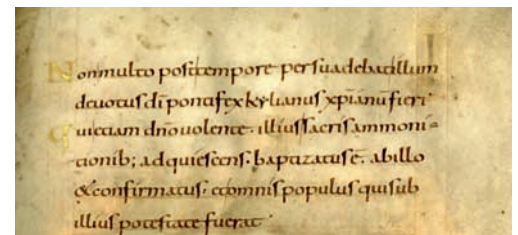 Non multo post tempore persuadebat illum
deuotus dī pontifex kylianus xp̄ianū fieri·
Qui etiam dn̄o uolente· illius sacris ammoni-
tionib; adquiescens· baptizatus ē· ab illo
& confirmatus· et omnis populus qui sub
illius potestate fuerat·